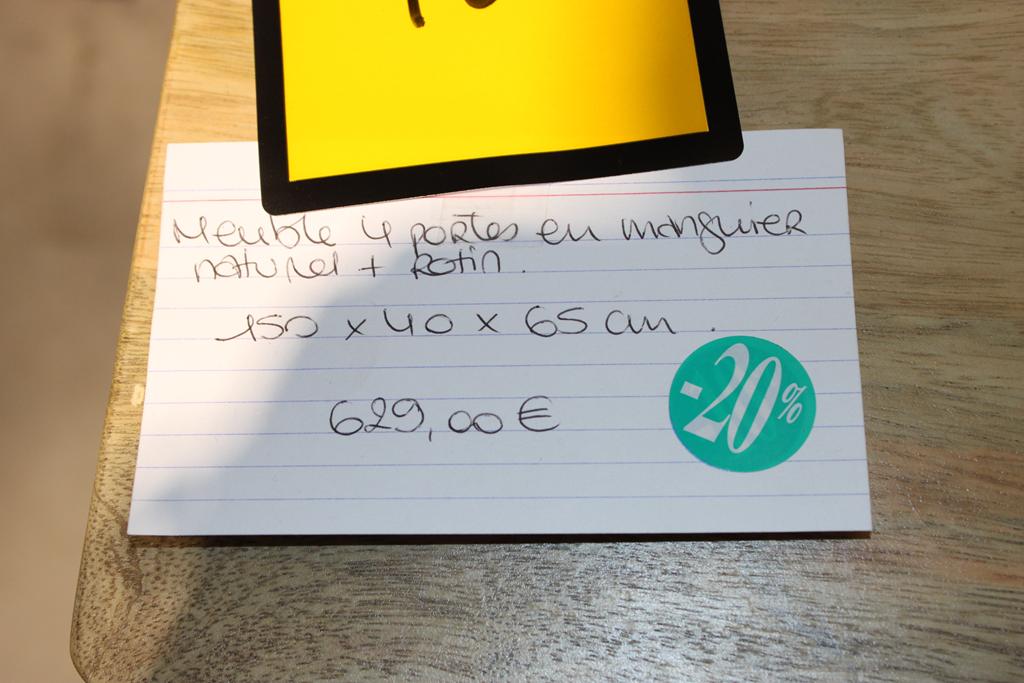 Meuble 4 portes en manguier
naturel + Rotin.
150 x 40 x 65 cm.
629,00 €
-20%